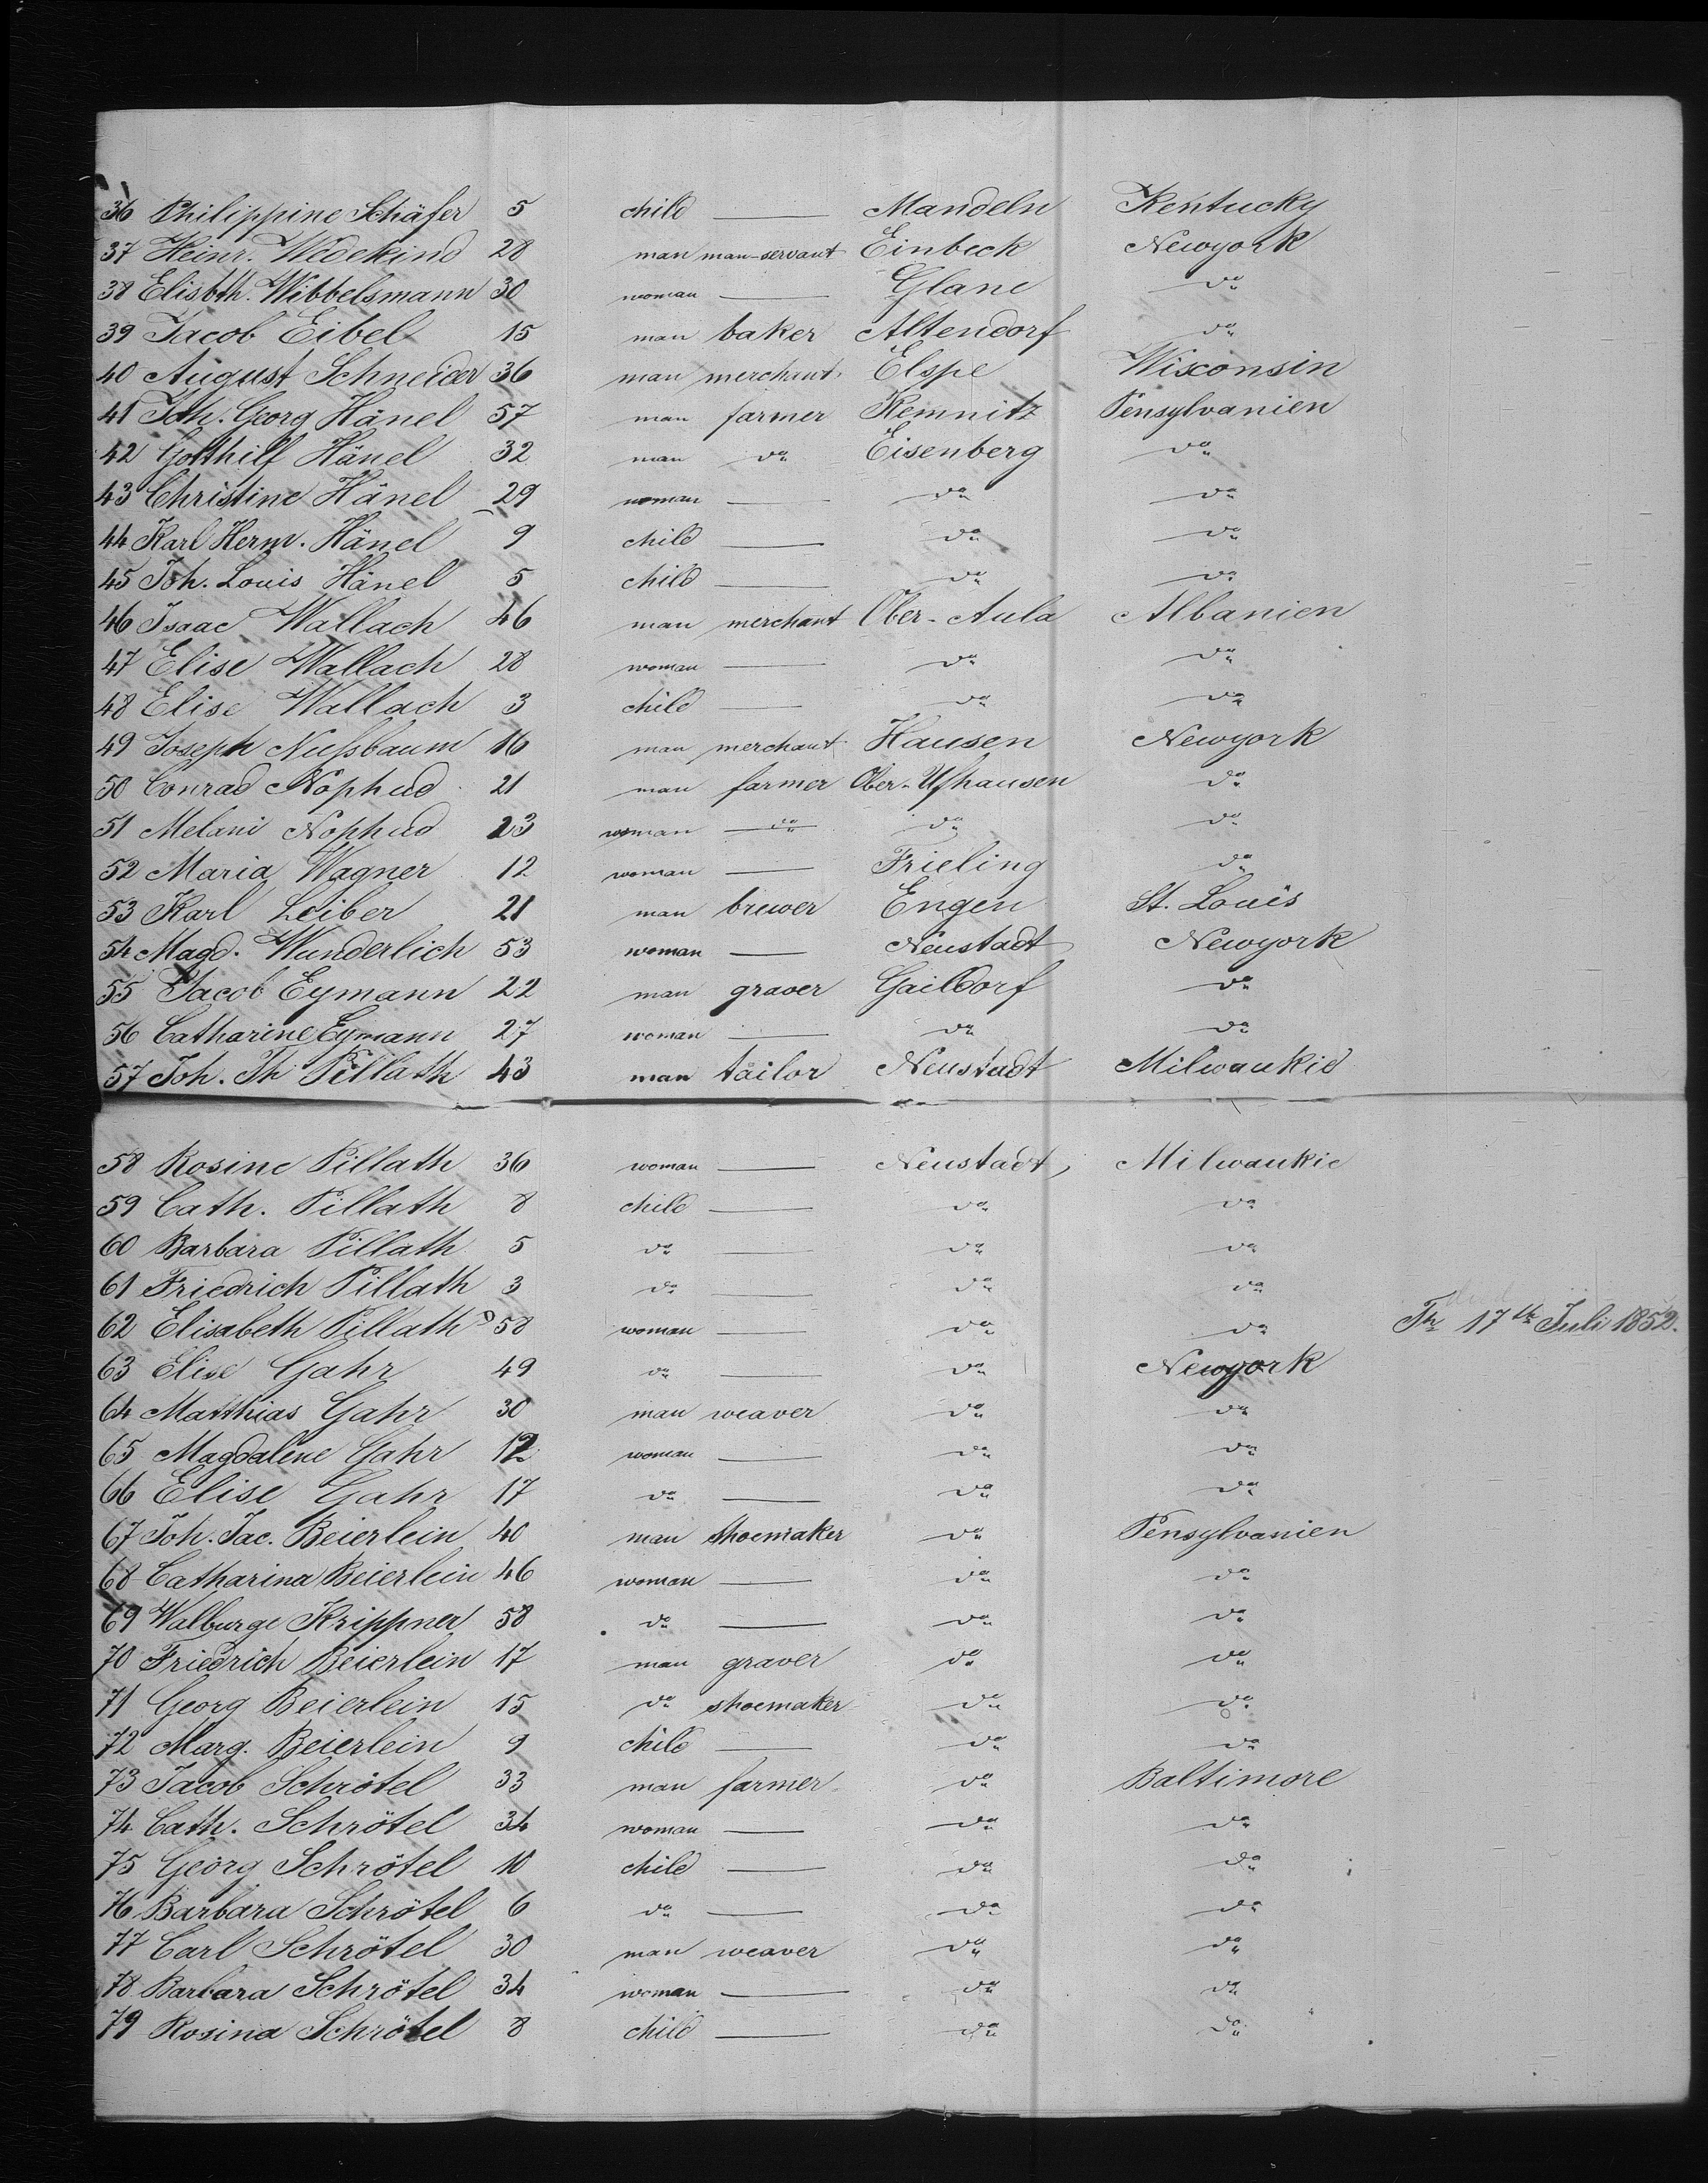 36 Philippine Schäfer 5 child — Mandeln Kentucky
37 Heinr. Wedekind 28 man man-servant Einbeck Newyork
38 Elisbth. Wibbelsmann 30 woman — Glane do
39 Jacob Eibel 15 man baker Altendorf do
40 August Schneider 36 man merchant Elspe Wisconsin
41 Joh. Georg Hänel 57 man farmer Kemnitz Pensylvanien
42 Gotthilf Hänel 32 man do Eisenberg do
43 Christine Hänel 29 woman — do do
44 Karl Herm. Hänel 9 child — do do
45 Joh. Louis Hänel 5 child — do do
46 Isaac Wallach 46 man merchant Ober-Aula Albanien
47 Elise Wallach 28 woman — do do
48 Elise Wallach 3 child — do do
49 Joseph Nußbaum 16 man merchant Hausen Newyork
50 Conrad Nophud 21 man farmer Ober-Ufhausen do
51 Melani Nophud 23 woman do do do
52 Maria Wagner 12 woman — Frieling do
53 Karl Leiber 21 man brewer Engen St. Louis
54 Magd. Wunderlich 53 woman — Neustadt Newyork
55 Jacob Eymann 22 man graver Gaildorf do
56 Catharine Eymann 27 woman — do do
57 Joh. Th Pillath 43 man tailor Neustadt Milwaukie
58 Rosine Pillath 36 woman — Neustadt, Milwaukie
59 Cath. Pillath 8 child — do do
60 Barbara Pillath 5 do — do do
61 Friedrich Pillath 3 do — do do
62 Elisabeth Pillath 58 woman — do do 17th Juli 1852.
63 Elise Gahr 49 do — do Newyork
64 Matthias Gahr 30 man weaver do do
65 Magdalene Gahr 12 woman — do do
66 Elise Gahr 17 do — do do
67 Joh. Jac. Beierlein 40 man shoemaker do Pensylvanien
68 Catharina Beierlein 46 woman — do do
69 Walburge Krippner 58 do — do do
70 Friedrich Beierlein 17 man graver do do
71 Georg Beierlein 15 do shoemaker do do
72 Marg. Beierlein 9 child — do do
73 Jacob Schrötel 33 man farmer do Baltimore
74 Cath. Schrötel 34 woman — do do
75 Georg Schrötel 10 child — do do
76 Barbara Schrötel 6 do — do do
77 Carl Schrötel 30 man weaver do do
78 Barbara Schrötel 34 woman — do do
79 Rosina Schrötel 8 child — do do